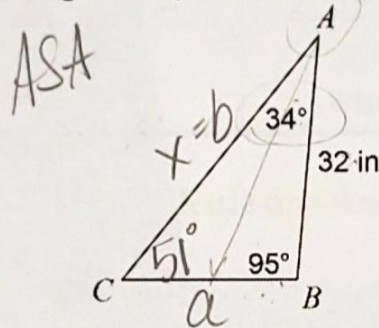 A
ASA
x=b
34°
32 in
51°
95°
C
a
B